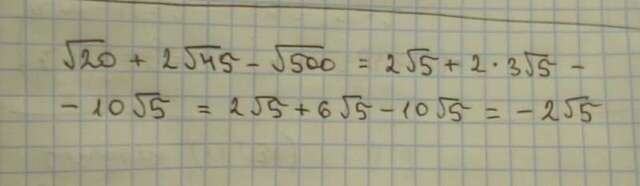 √20 + 2√45 - √500 = 2√5 + 2 · 3√5 -
- 10√5 = 2√5 + 6√5 - 10√5 = - 2√5